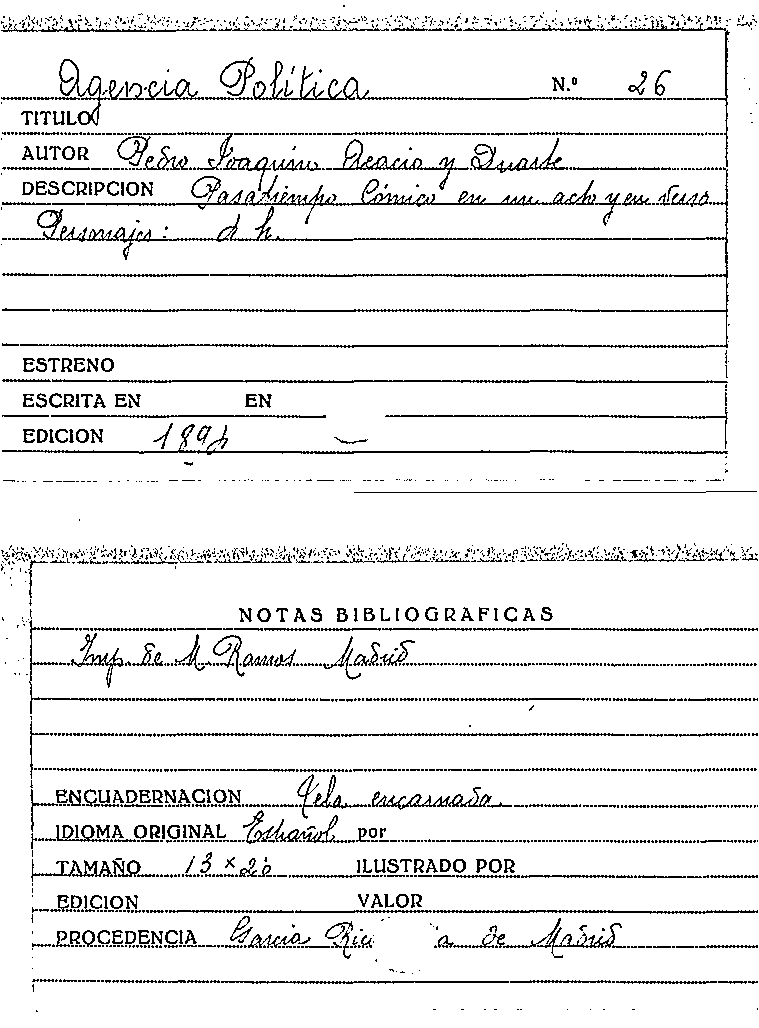 Agencia Política N.º 26
TITULO
AUTOR Pedro Joaquin Acacio y Duarte
DESCRIPCION Pasatiempo Cómico en un acto y en verso
Personajes: d h.
ESTRENO
ESCRITA EN EN
EDICION
NOTAS BIBLIOGRAFICAS
Imp. de M. Ramos Madrid
ENCUADERNACION Tela encarnada
IDIOMA ORIGINAL Español por
TAMAÑO 13 x 20 ILUSTRADO POR
EDICION VALOR
PROCEDENCIA Garcia de Madrid